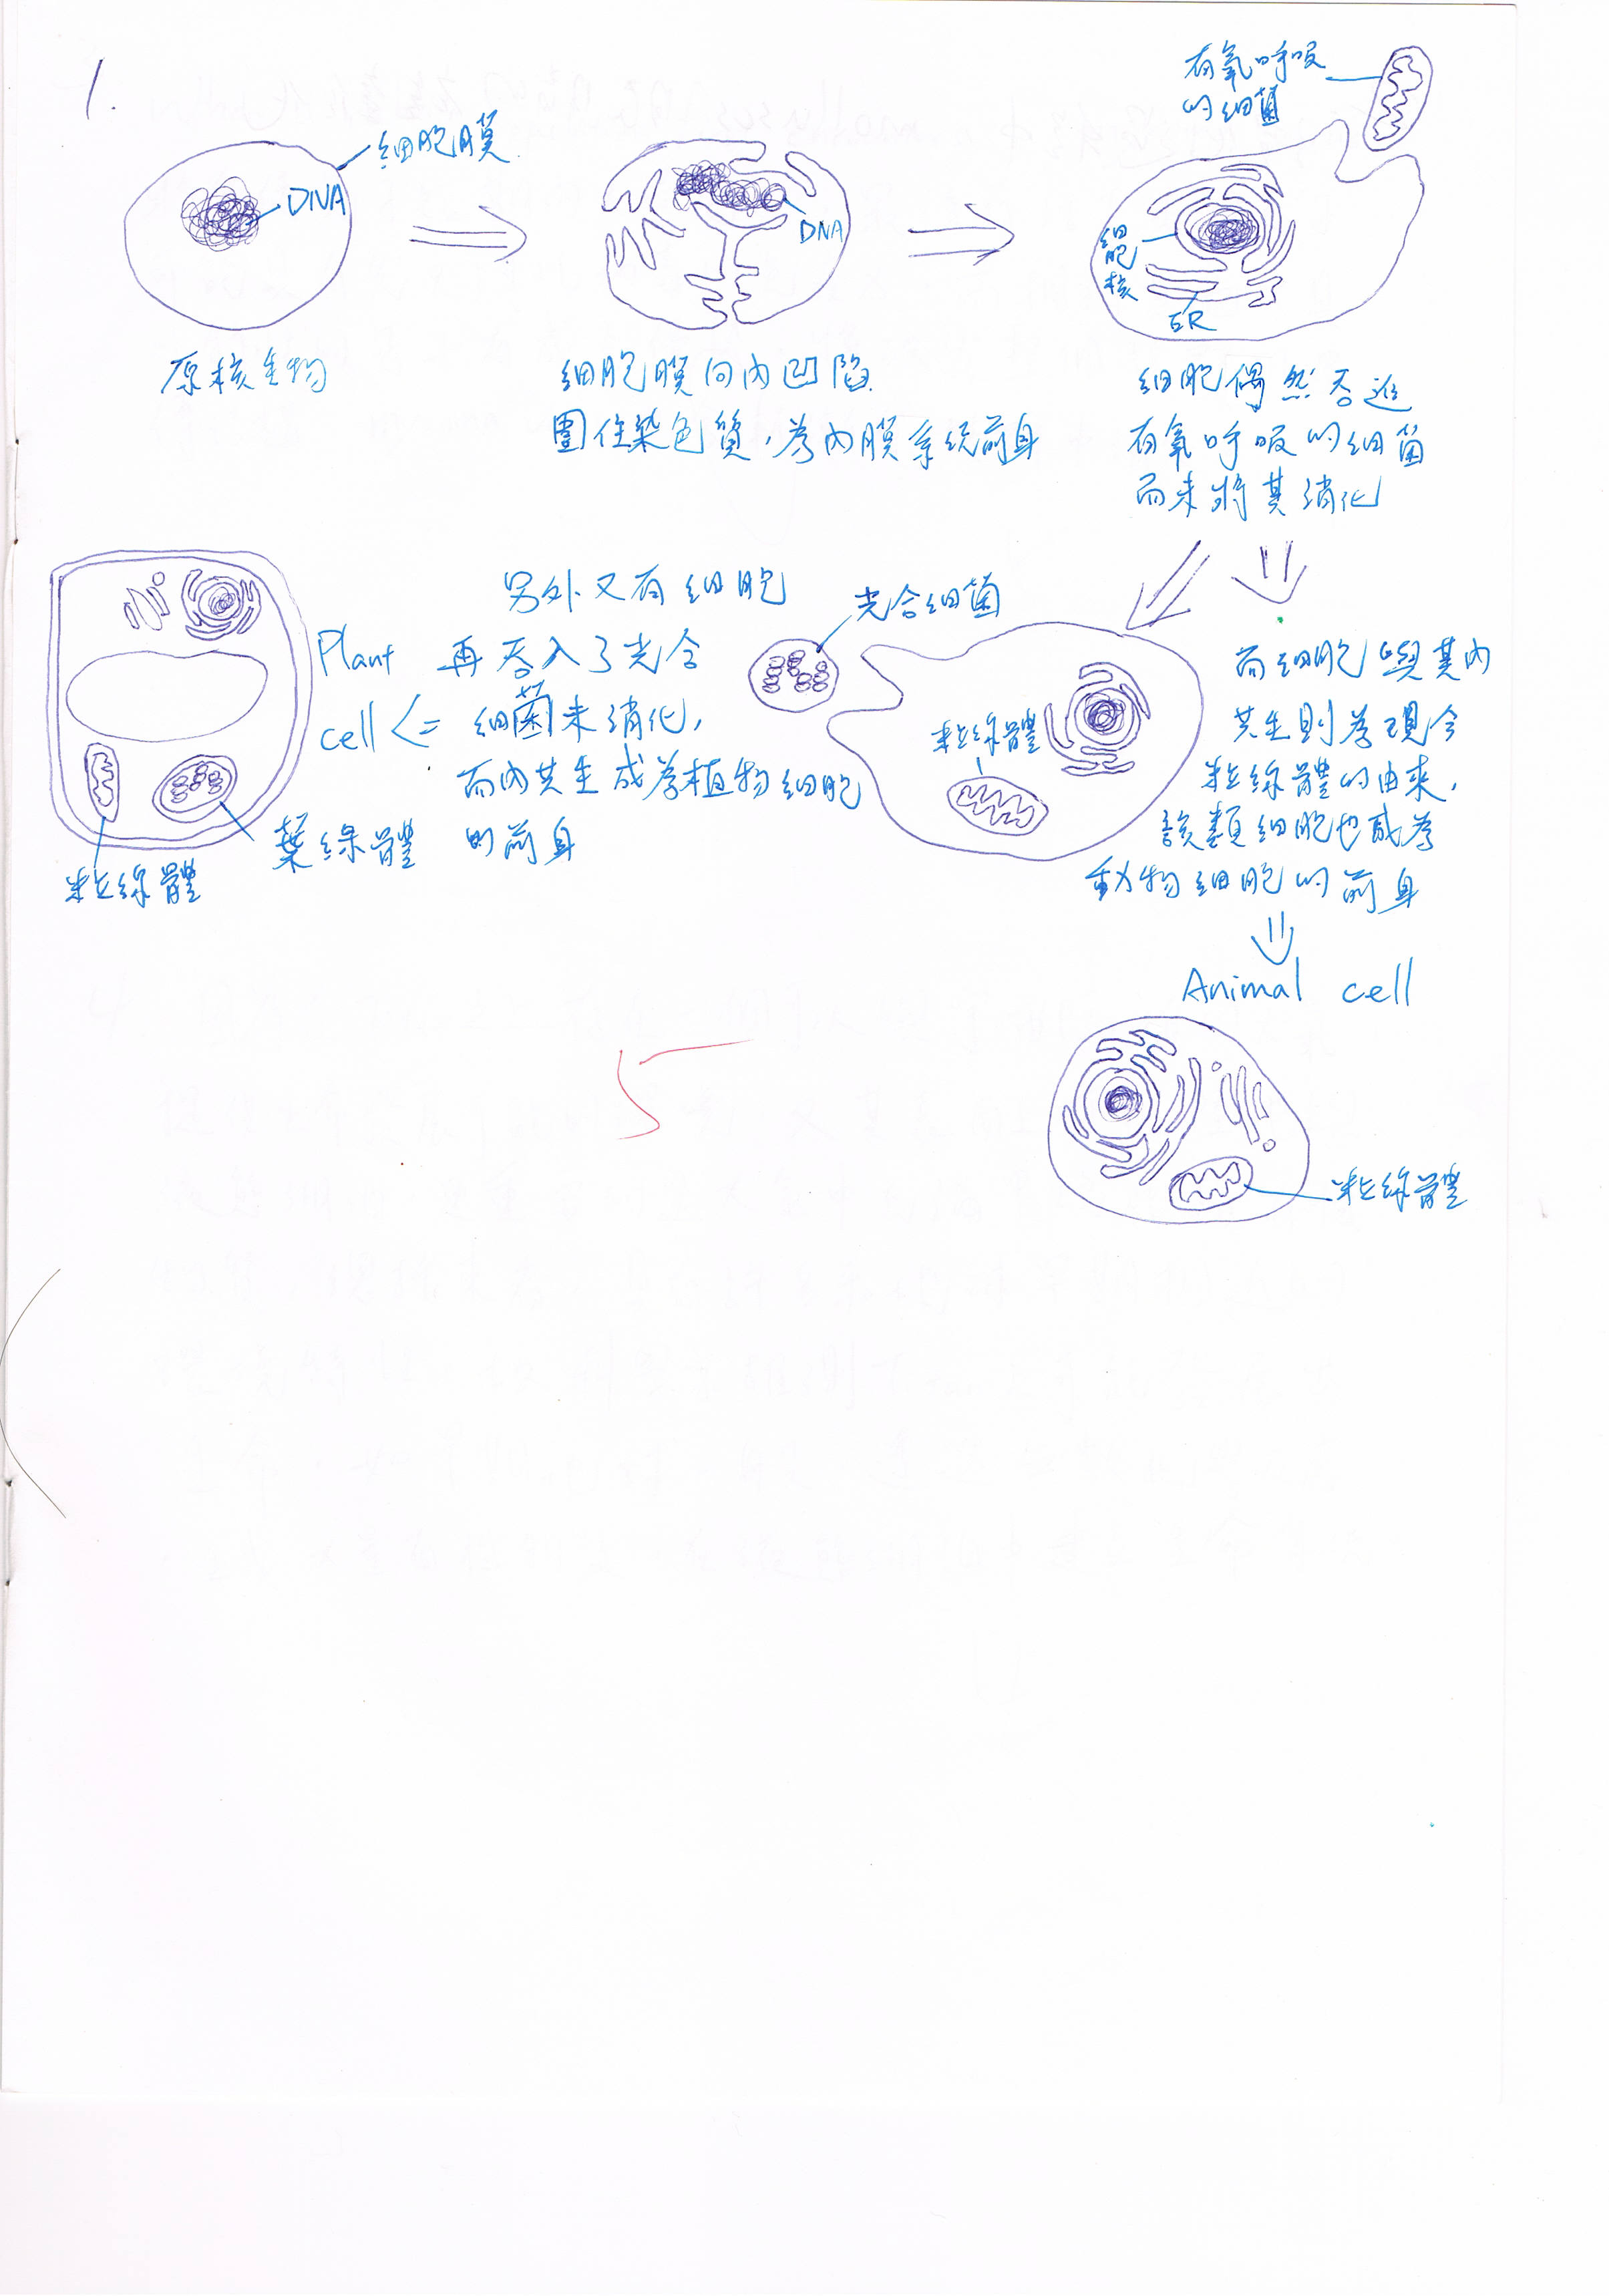 1.
細胞膜
DNA
原核生物
DNA
細胞膜向內凹陷
圍住染色質,為內膜系統前身
有氧呼吸
的細菌
細胞核
ER
細胞偶然吞進
有氧呼吸的細菌
而未將其消化
而細胞與其內
共生則為現今
粒線體的由來,
該類細胞也成為
動物細胞的前身
Animal cell
粒線體
光合細菌
粒線體
另外又有細胞
再吞入了光合
細菌未消化,
而內共生成為植物細胞
的前身
Plant
cell
葉綠體
粒線體
5